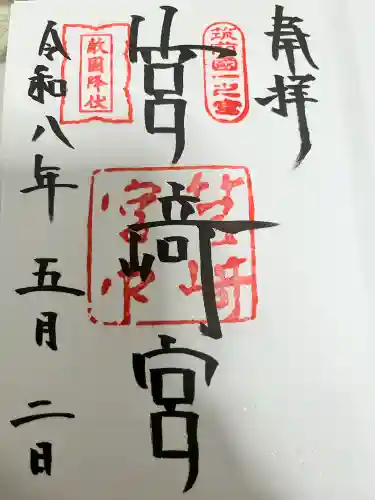 奉拝
筑前國一之宮
筥崎宮
敵國降伏
令和八年 五月 二日